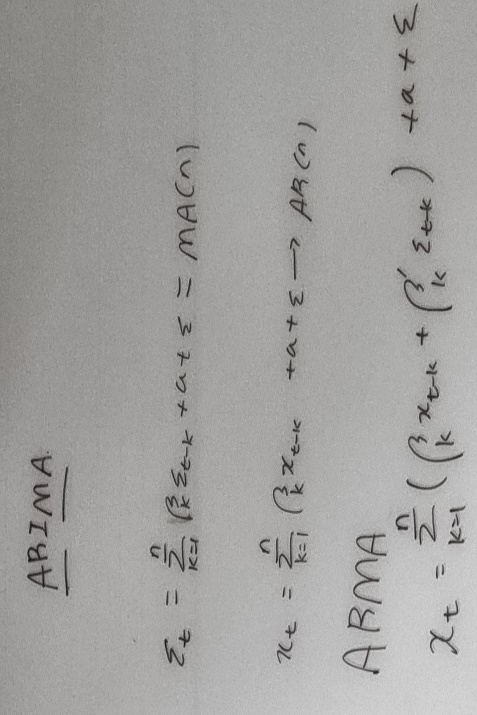 ARIMA
Σt = Σ_{k=1}^{n} β_k Σ_{t-k} + a + Σ = MA(n)
x_t = Σ_{k=1}^{n} β_k x_{t-k} + a + Σ → AR(n)
ARMA
x_t = Σ_{k=1}^{n} (β_k x_{t-k} + β'_k Σ_{t-k}) + a + Σ